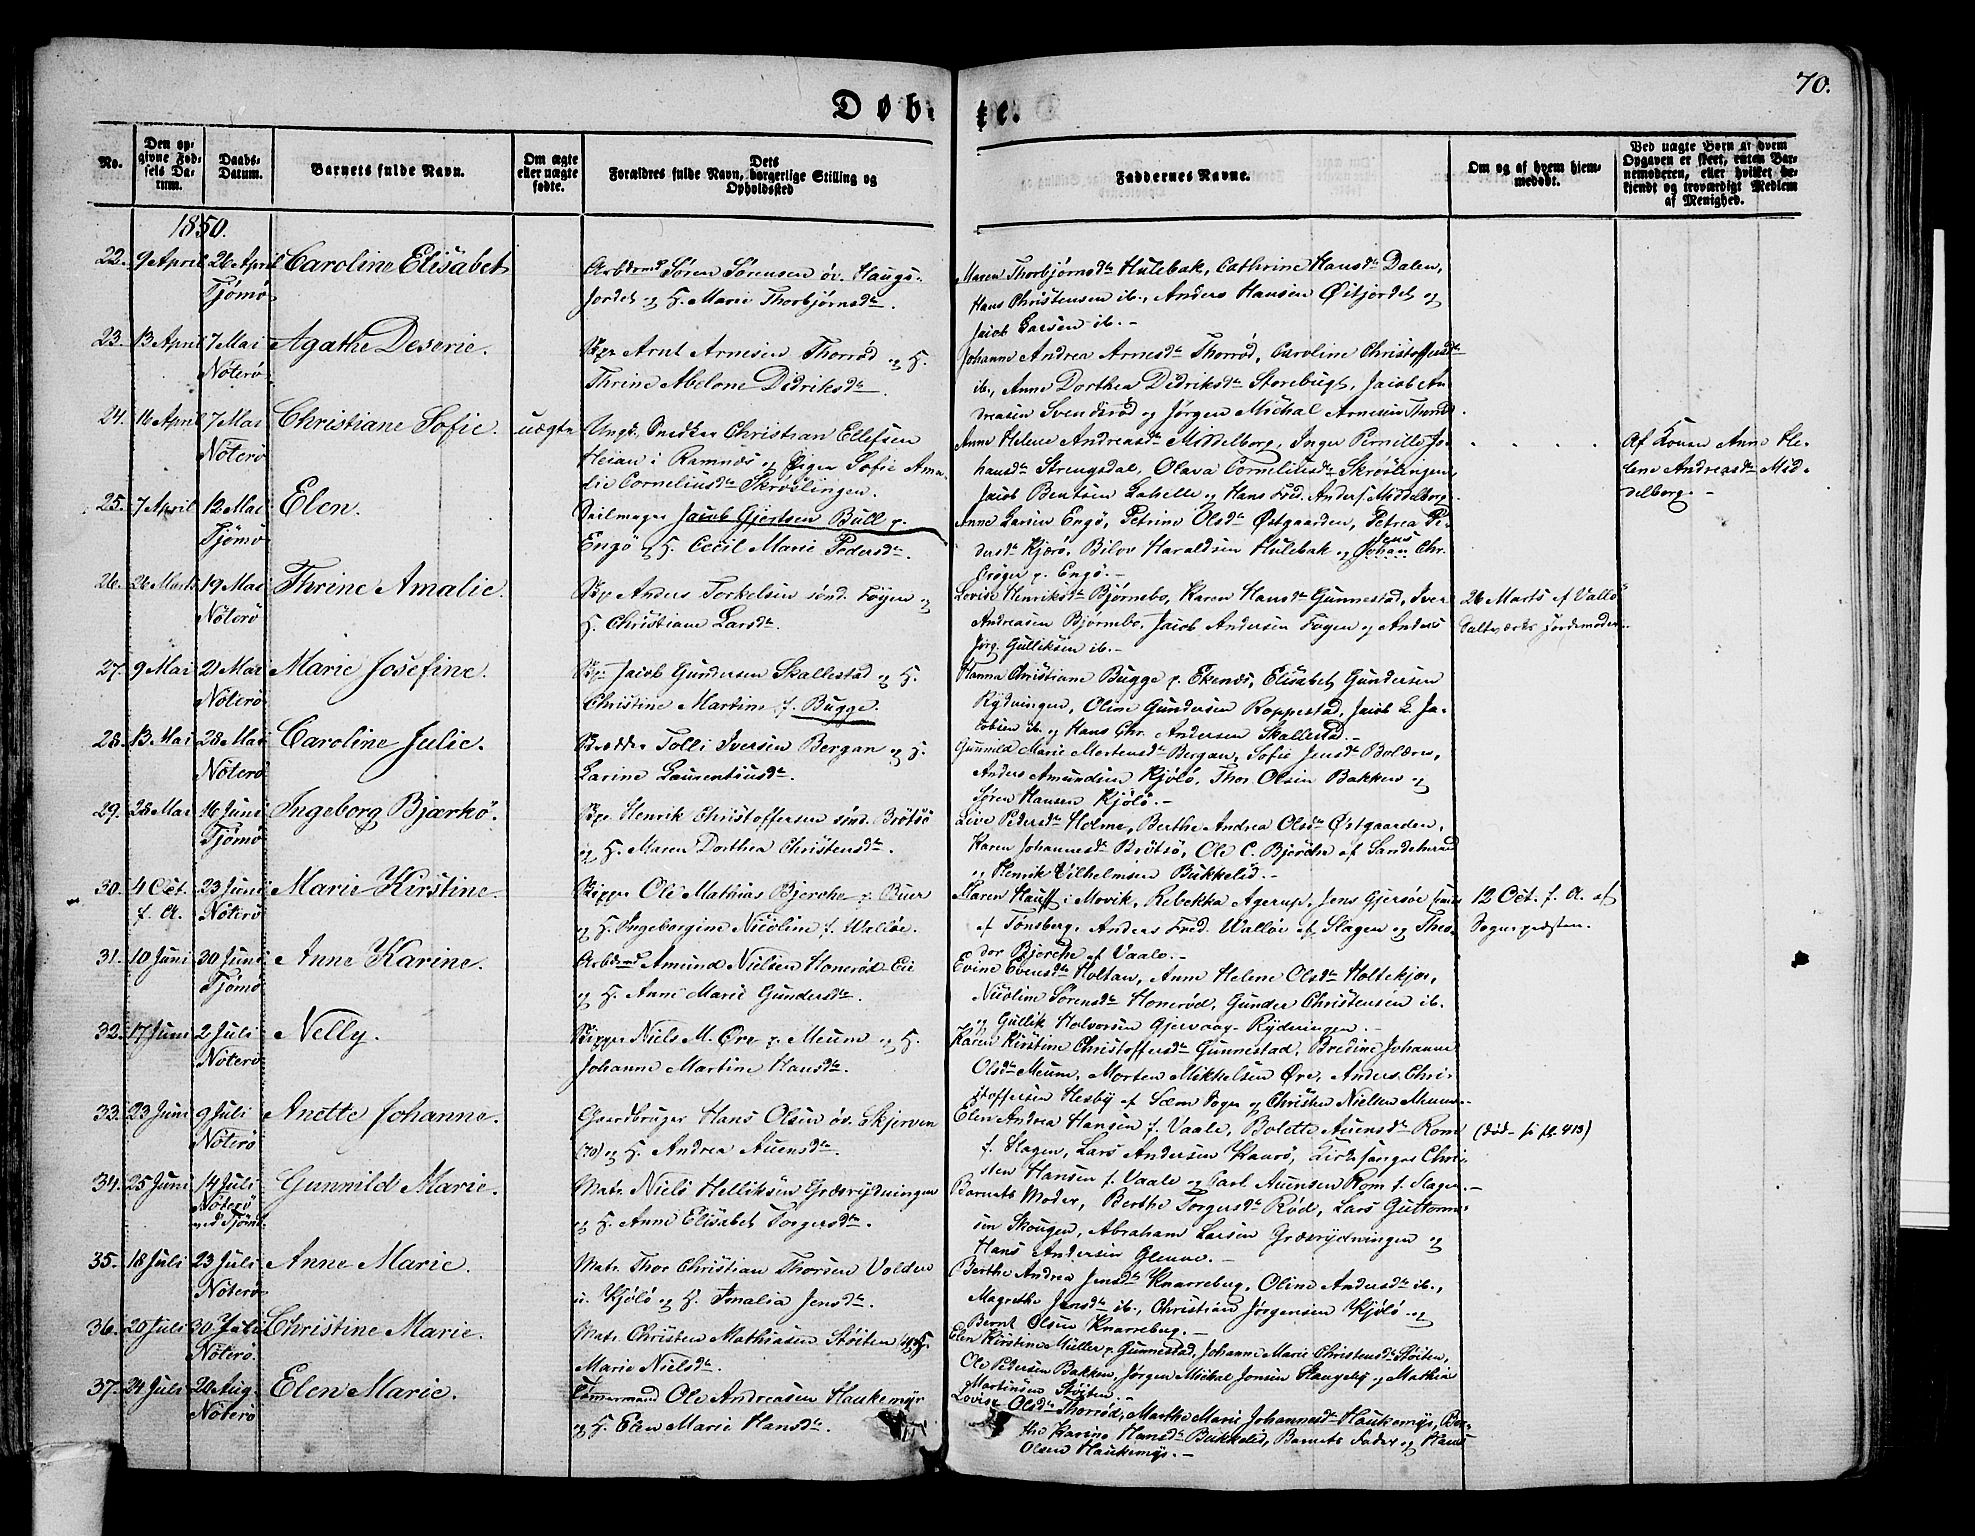 70.
Døbte.
No.
Den op-
givne Fød-
sels Da-
tum.
Daabs-
Datum.
Barnets fulde Navn.
Om ægte
eller uægte
fødte.
Dets
Forældres fulde Navn, borgerlige Stilling og
Opholdssted
Faddernes Navne.
Om og af hvem hjem-
medøbt.
Ved uægte Børn af hvem
Opgaven er skeet, enten Bar-
nemoderen, eller hvilket be-
kjendt og troværdigt Medlem
af Menighed.
1850.
22. 9 April 26 April Tjømø Caroline Elisabet
Arbdsmd Søren Sørensen øv. Haugs-
jordet og H. Marie Thorbjørnsdtr.
Maren Thorbjørnsdtr Hulebak, Cathrine Hansdtr Dalen,
Hans Christensen ib., Anders Hansen Østjordet og
Jacob Larsen ib. -
23. 13 April 7 Mai Nøterø Agathe Deserie.
Skpr Arnt Arnesen Thorrød og H.
Thrine Abelone Didriksdtr.
Johanne Andrea Arnesdtr Thorrød, Caroline Christoffersdtr
ib., Anne Dorthea Didriksdtr Storebugt, Jacob An-
dreasen Svendsrød og Jørgen Michal Arnesen Thorrød.
24. 16 April 7 Mai Nøterø Christiane Sofie. uægte
Ungk. Snedker Christian Ellefsen
Heian i Ramnes og Pigen Sofie Ama-
lie Corneliusdtr Skrøslingen.
Anne Helene Andreasdtr Middelborg, Inger Pernille Jo-
hansdtr Strengsdal, Olava Corneliusdtr Skrøslingen,
Jacob Bentsen Lahelle og Hans Fred. Anders. Middelborg.
Af Konen Anne He-
lene Andreasdtr Mid-
delborg. -
25. 7 April 12 Mai Tjømø Elen.
Seilmager Jacob Gjertsen Bull p.
Engø og H. Cecil Marie Pedersdtr.
Anne Larsen Engø, Petrine Olsdtr Østgaarden, Petrea Pe-
dersdtr Kjærø, Bilov Haraldsen Hulebak og Johan Chr.
Jens
Crøger p. Engø. -
26. 26 Marts 19 Mai Nøterø Thrine Amalie.
Skp. Anders Torkelsen sønd. Føyen og
H. Christiane Larsdtr.
Lovise Henriksdtr Bjørnebo, Karen Hansdtr Gunnestad, Iver
Andreasen Bjørnebo, Jacob Andersen Føyen og Anders
Jørg. Gulliksen ib. -
26 Marts af Vallø
Saltværks Jordemoder.
27. 9 Mai 21 Mai Nøterø Marie Josefine.
Skp. Jacob Gundersen Skallestad og H.
Christine Martine f. Bugge.
Hanna Christiane Bugge p. Ekenes, Elisabet Gundersen
Rydningen, Oline Gundersen Roppestad, Jacob L. Ja-
cobsen ib. og Hans Chr. Andersen Skallestad. -
28. 13 Mai 28 Mai Nøterø Caroline Julie.
Tolli Iversen Bergan og H.
Larine Laurentiusdtr.
Gunnild Marie Mortensdtr Bergan, Sofie Jensdtr Bolærne,
Anders Amundsen Kjølø, Thor Olsen Bakken og
Søren Hansen Kjølø. -
29. 28 Mai 16 Juni Tjømø Ingeborg Bjærkø.
Skp. Henrik Christoffersen sønd. Brøtsø
og H. Maren Dorthea Christensdtr.
Live Pedersdtr Holme, Berthe Andrea Olsdtr Østgaarden,
Karen Johannesdtr Brøtsø, Ole C. Bjerche af Sandeherred
og Henrik Vilhelmsen Bukkelid. -
30. 4 Oct. f. A. 23 Juni Nøterø Marie Kirstine.
Skipper Ole Mathias Bjerche p. Buer
og H. Ingeborgine Nicoline f. Walløe.
Karen Hauff i Movik, Rebekka Agerup, Jens Gjersøe
af Tønsberg, Anders Fred. Walløe af Slagen og Theo-
dor Bjerche af Vaale. -
12 Oct. f. A. af
Sognepresten.
31. 10 Juni 30 Juni Tjømø Anne Karine.
Arbdsmd Amund Nielsen Honerød Eie
og H. Anne Marie Gundersdtr.
Evine Evensdtr Holtan, Anne Helene Olsdtr Holtekjær,
Nicoline Sørensdtr Honerød, Gunder Christensen ib.
og Gullik Halvorsen Gjervaag-Rydningen. -
32. 17 Juni 2 Juli Nøterø Nelly.
Skipper Niels M. Øre p. Meum og H.
Johanne Martine Hansdtr.
Karen Kirstine Christoffersdtr Gunnestad, Bredine Johanne
Olsdtr Meum, Morten Mikkelsen Øre, Anders Chri-
stoffersen Hesby af Sæm Sogn og Christen Nielsen Meum.
33. 23 Juni 9 Juli Nøterø Anette Johanne.
Gaardbruger Hans Olsen øv. Skjerven
(70) og H. Andrea Auensdtr.
Elen Andrea Hansen f. Vaale, Bolette Auensdtr Rom
f. Slagen, Lars Andersen Kaarø, Kirkesanger Chri-
sten Hansen f. Vaale og Carl Auensen Rom f. Slagen. -
(død - fol. 413)
34. 25 Juni 14 Juli Nøterø ved Tjømø Gunnild Marie.
Matr. Niels Helliksen Græsrydningen
og H. Anne Elisabet Torgersdtr.
Barnets Moder, Berthe Torgersdtr Rød, Lars Guttorm-
sen Skougen, Abraham Larsen Græsrydningen og
Hans Andersen Glenne. -
35. 18 Juli 23 Juli Nøterø Anne Marie.
Matr. Thor Christian Thorsen Volden
u. Kjølø og H. Amalia Jensdtr.
Berthe Andrea Jensdtr Knarreberg, Oline Andersdtr ib.,
Magrethe Jensdtr ib., Christian Jørgensen Kjølø og
Bernt Olsen Knarreberg. -
36. 20 Juli 30 Juli Nøterø Christine Marie.
Matr. Christen Mathiasen Støiten og H.
Marie Nielsdtr.
Elen Kirstine Müller p. Gunnestad, Johanne Marie Christensdtr Støiten,
Ole Pedersen Bakken, Jørgen Michel Jonsen Haugeby og Mathias
Martinsen Støiten. -
37. 24 Juli 20 Aug. Nøterø Elen Marie.
Tømmermand Ole Andreasen Haukemyr
og H. Elen Marie Hansdtr.
Lovise Olsdtr Thorrød, Marthe Marie Johannesdtr Haukemyr, Ber-
the Karine Hansdtr Bukkelid, Barnets Fader og Hans
Olsen Haukemyr. -